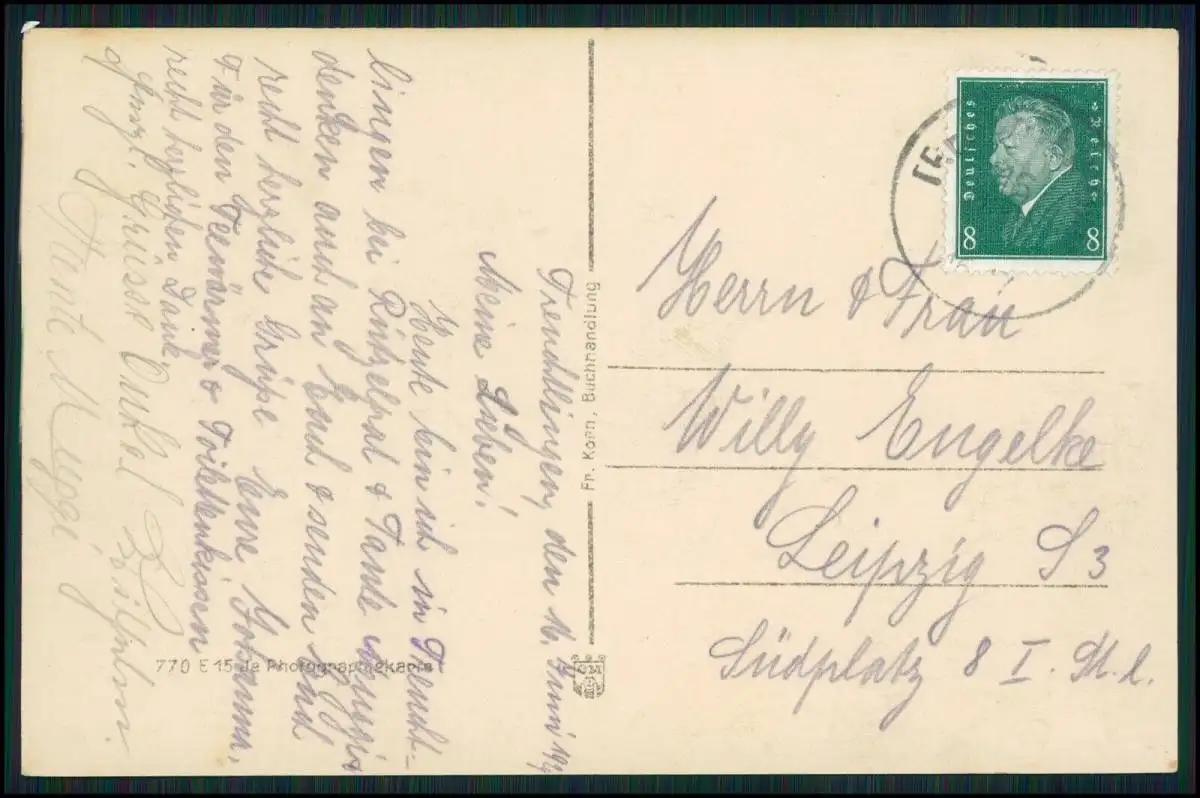 Treuchtlingen, den 16. Juni
Meine Lieben!
Heute bin ich in Treucht-
lingen bei Ritzelpad & Tante Muggi &
denken auch an Euch & senden Euch
recht herzliche Grüße Eure
Für den Teewärmer & Toilettenkissen
recht herzlichen Dank
Grüsse Onkel Wilhelm.
Tante Muggi
Fr. Korn, Buchhandlung
770 E 15 Ja Photographiekarte
Deutsches Reich
8 8
Herrn & Frau
Willy Engelke
Leipzig S 3
Südplatz 8 I. M. l.